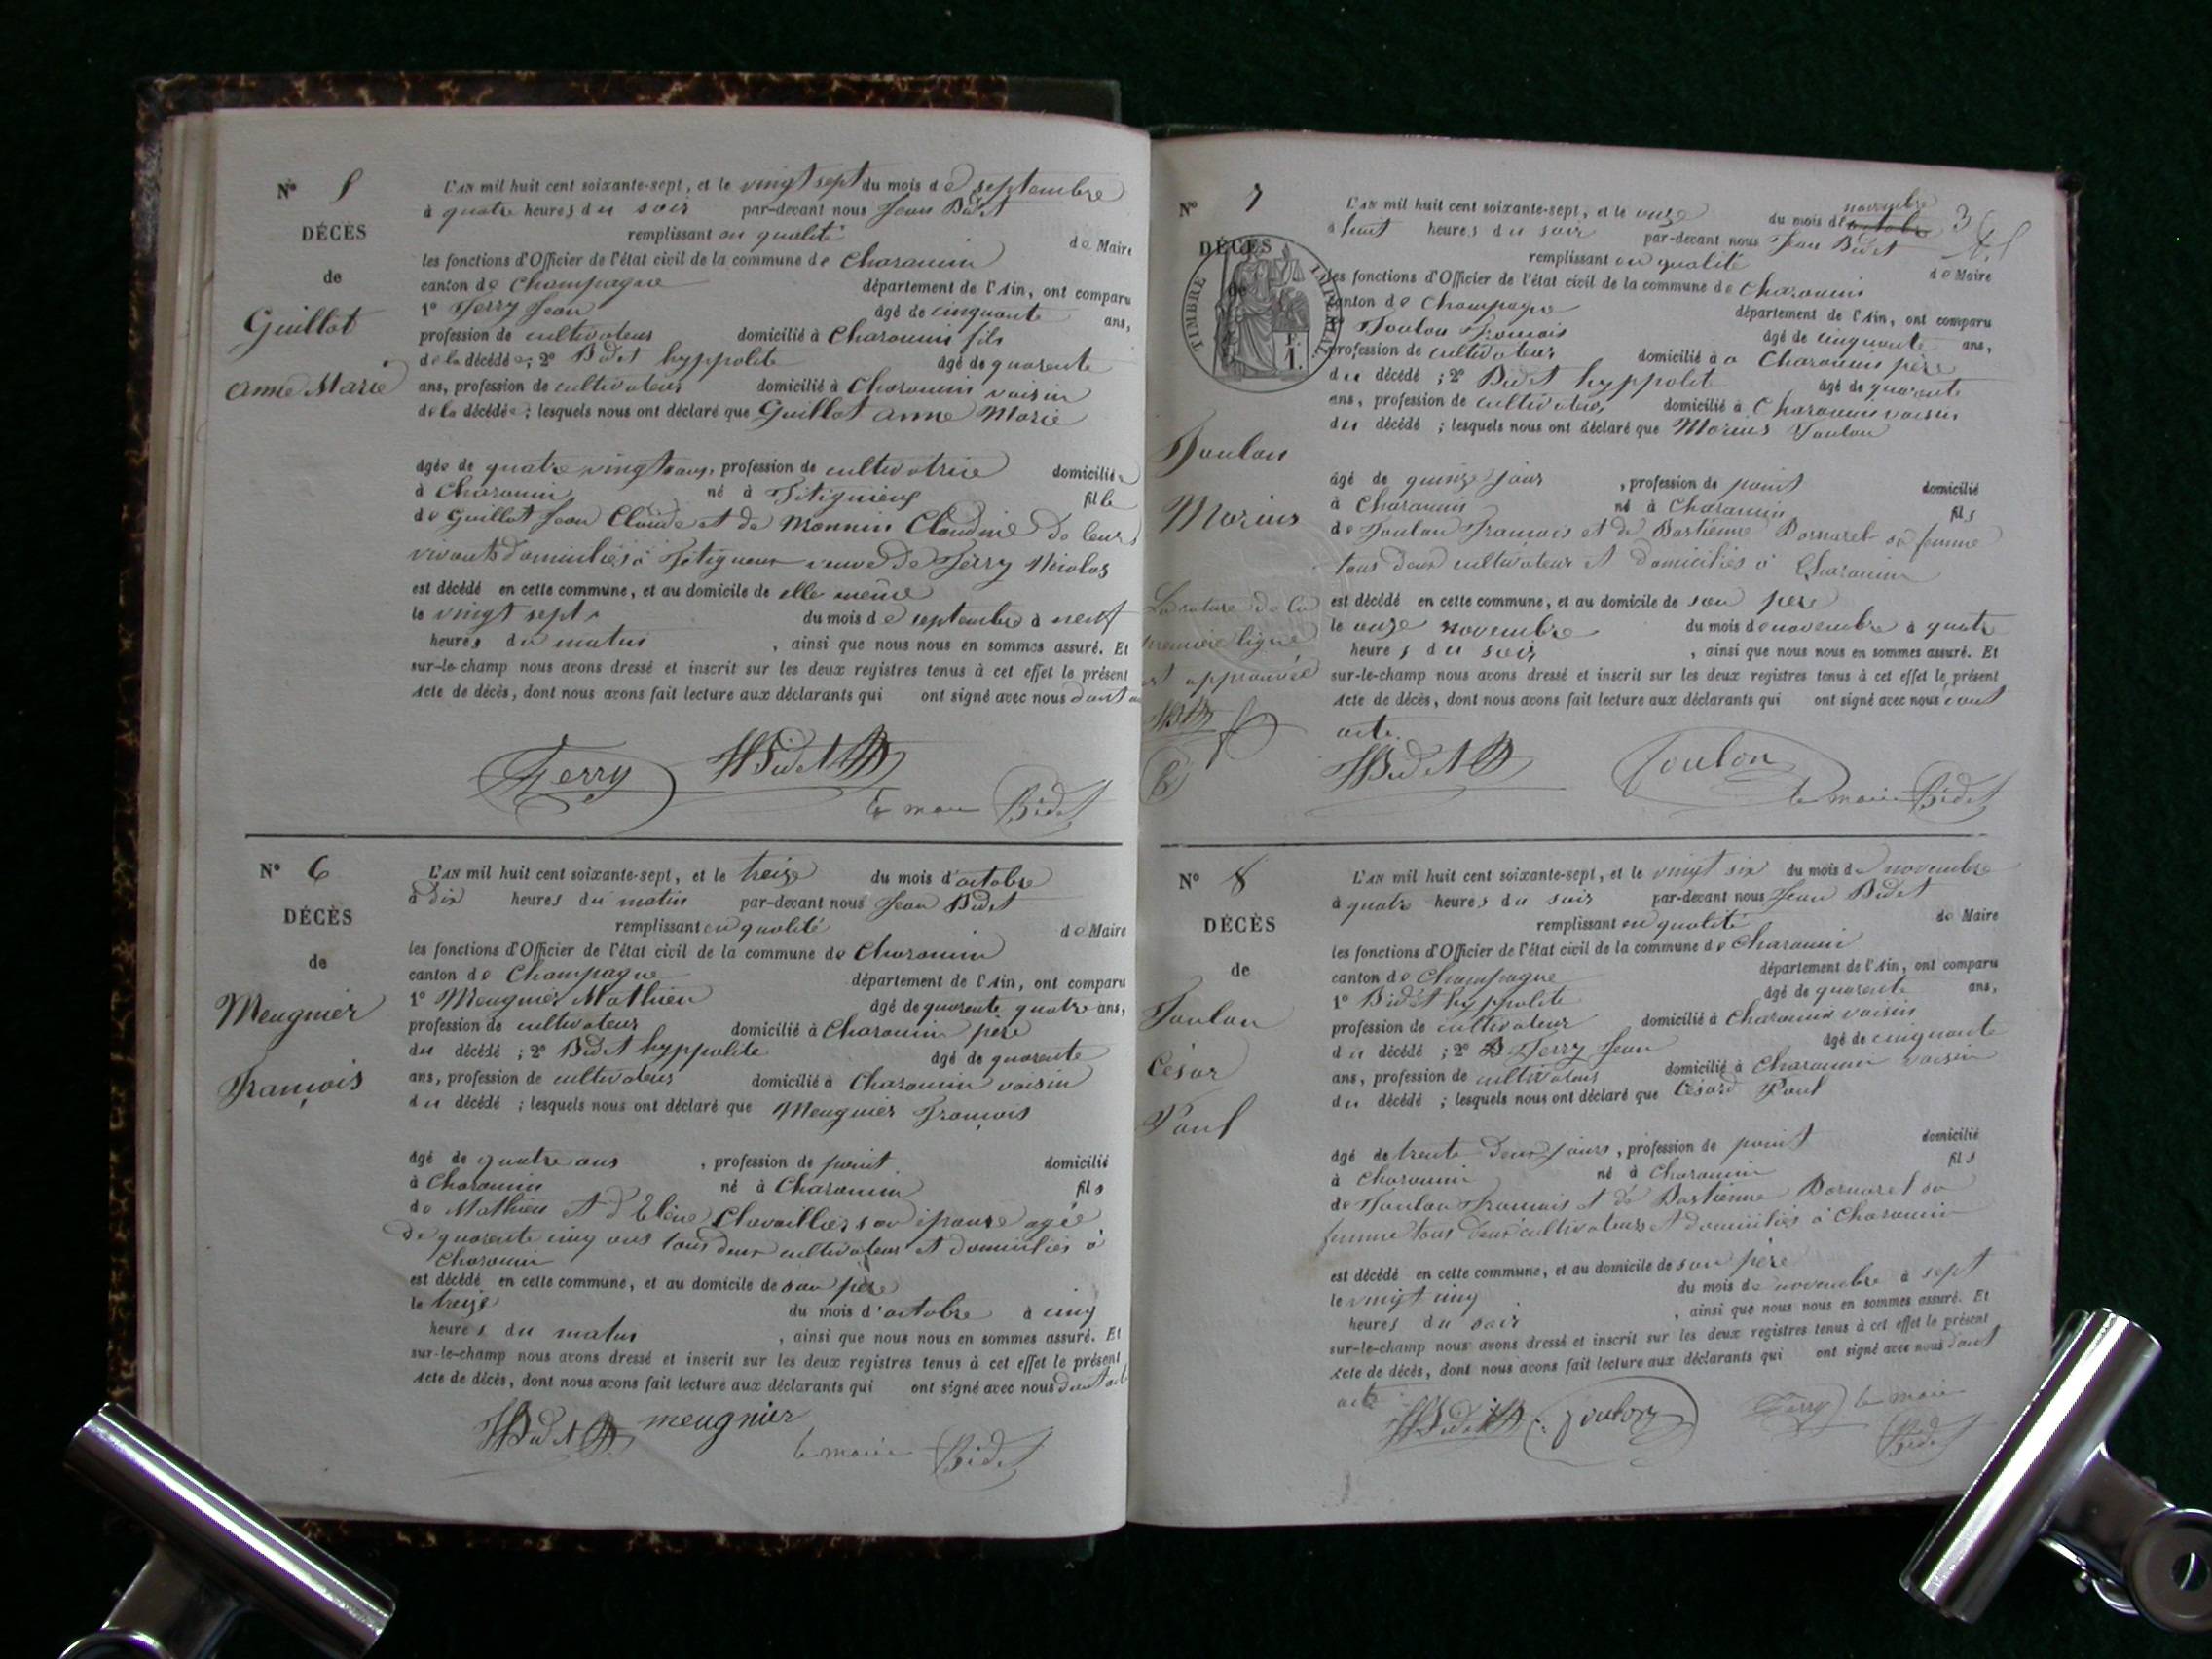 N° 5
DÉCÈS
de
Guillot
Anne Marie
L'AN mil huit cent soixante-sept, et le vingt sept du mois de septembre
à quatre heures du soir par-devant nous Jean Bidet
remplissant en qualité de Maire
les fonctions d'Officier de l'état civil de la commune de Charancin
canton de Champagne département de l'Ain, ont comparu
1° Ferry Jean âgé de cinquante ans,
profession de cultivateur domicilié à Charancin fils
de la décédée; 2° Bidet hyppolite âgé de quarente
ans, profession de cultivateur domicilié à Charancin voisin
de la décédée; lesquels nous ont déclaré que Guillot Anne Marie
âgée de quatre vingt ans, profession de cultivatrice domiciliée
à Charancin né à fille
de Guillot Jean Claude et de Monnin Claudine de leurs
vivants domiciliés à veuve de Ferry Nicolas
est décédé en cette commune, et au domicile de elle même
le vingt sept du mois de septembre à neuf
heures du matin , ainsi que nous nous en sommes assuré. Et
sur-le-champ nous avons dressé et inscrit sur les deux registres tenus à cet effet le présent
acte de décès, dont nous avons fait lecture aux déclarants qui ont signé avec nous dont
Ferry HBidet
le maire Bidet
N° 6
DÉCÈS
de
Meugnier
François
L'AN mil huit cent soixante-sept, et le treize du mois d'octobre
à dix heures du matin par-devant nous Jean Bidet
remplissant en qualité de Maire
les fonctions d'Officier de l'état civil de la commune de Charancin
canton de Champagne département de l'Ain, ont comparu
1° Meugnier Mathieu âgé de quarente quatre ans,
profession de cultivateur domicilié à Charancin père
du décédé ; 2° Bidet hyppolite âgé de quarente
ans, profession de cultivateur domicilié à Charancin voisin
du décédé ; lesquels nous ont déclaré que Meugnier François
âgé de quatre ans , profession de point domicilié
à Charancin né à Charancin fils
de Mathieu et d'Elène Chevaillier son épouse agée
de quarente cinq ans tous deux cultivateur et domiciliés à
Charancin
est décédé en cette commune, et au domicile de son père
le treize du mois d'octobre à cinq
heures du matin , ainsi que nous nous en sommes assuré. Et
sur-le-champ nous avons dressé et inscrit sur les deux registres tenus à cet effet le présent
acte de décès, dont nous avons fait lecture aux déclarants qui ont signé avec nous dont
HBidet meugnier
le maire Bidet
N° 7
DÉCÈS
de
TIMBRE IMPÉRIAL
1 F.
Toulon
Marius
La rature de la
première ligne
est approuvée
L'AN mil huit cent soixante-sept, et le onze du mois de octobre novembre
à huit heures du soir par-devant nous Jean Bidet
remplissant en qualité de Maire
les fonctions d'Officier de l'état civil de la commune de Charancin
canton de Champagne département de l'Ain, ont comparu
1° Toulon François âgé de cinquante ans,
profession de cultivateur domicilié à a Charancin père
du décédé ; 2° Bidet hyppolit âgé de quarente
ans, profession de cultivateur domicilié à Charancin voisin
du décédé ; lesquels nous ont déclaré que Marius Toulon
âgé de quinze jours , profession de point domicilié
à Charancin né à Charancin fils
de Toulon François et de Bastienne Bornaret sa femme
tous deux cultivateur et domiciliés à Charancin
est décédé en cette commune, et au domicile de son père
le onze novembre du mois de novembre à quatre
heures du soir , ainsi que nous nous en sommes assuré. Et
sur-le-champ nous avons dressé et inscrit sur les deux registres tenus à cet effet le présent
acte de décès, dont nous avons fait lecture aux déclarants qui ont signé avec nous dont
acte.
HBidet Toulon
le maire Bidet
N° 8
DÉCÈS
de
Toulon
César
Paul
L'AN mil huit cent soixante-sept, et le vingt six du mois de novembre
à quatre heures du soir par-devant nous Jean Bidet
remplissant en qualité de Maire
les fonctions d'Officier de l'état civil de la commune de Charancin
canton de Champagne département de l'Ain, ont comparu
1° Bidet hyppolite âgé de quarente ans,
profession de cultivateur domicilié à Charancin voisin
du décédé ; 2° Ferry Jean âgé de cinquante
ans, profession de cultivateur domicilié à Charancin voisin
du décédé ; lesquels nous ont déclaré que Césard Paul
âgé de trente deux jours , profession de point domicilié
à Charancin né à Charancin fils
de Toulon François et de Bastienne Bornaret sa
femme tous deux cultivateurs et domiciliés à Charancin
est décédé en cette commune, et au domicile de son père
le vingt cinq du mois de novembre à sept
heures du soir , ainsi que nous nous en sommes assuré. Et
sur-le-champ nous avons dressé et inscrit sur les deux registres tenus à cet effet le présent
acte de décès, dont nous avons fait lecture aux déclarants qui ont signé avec nous dont
acte
HBidet Toulon Ferry le maire
Bidet